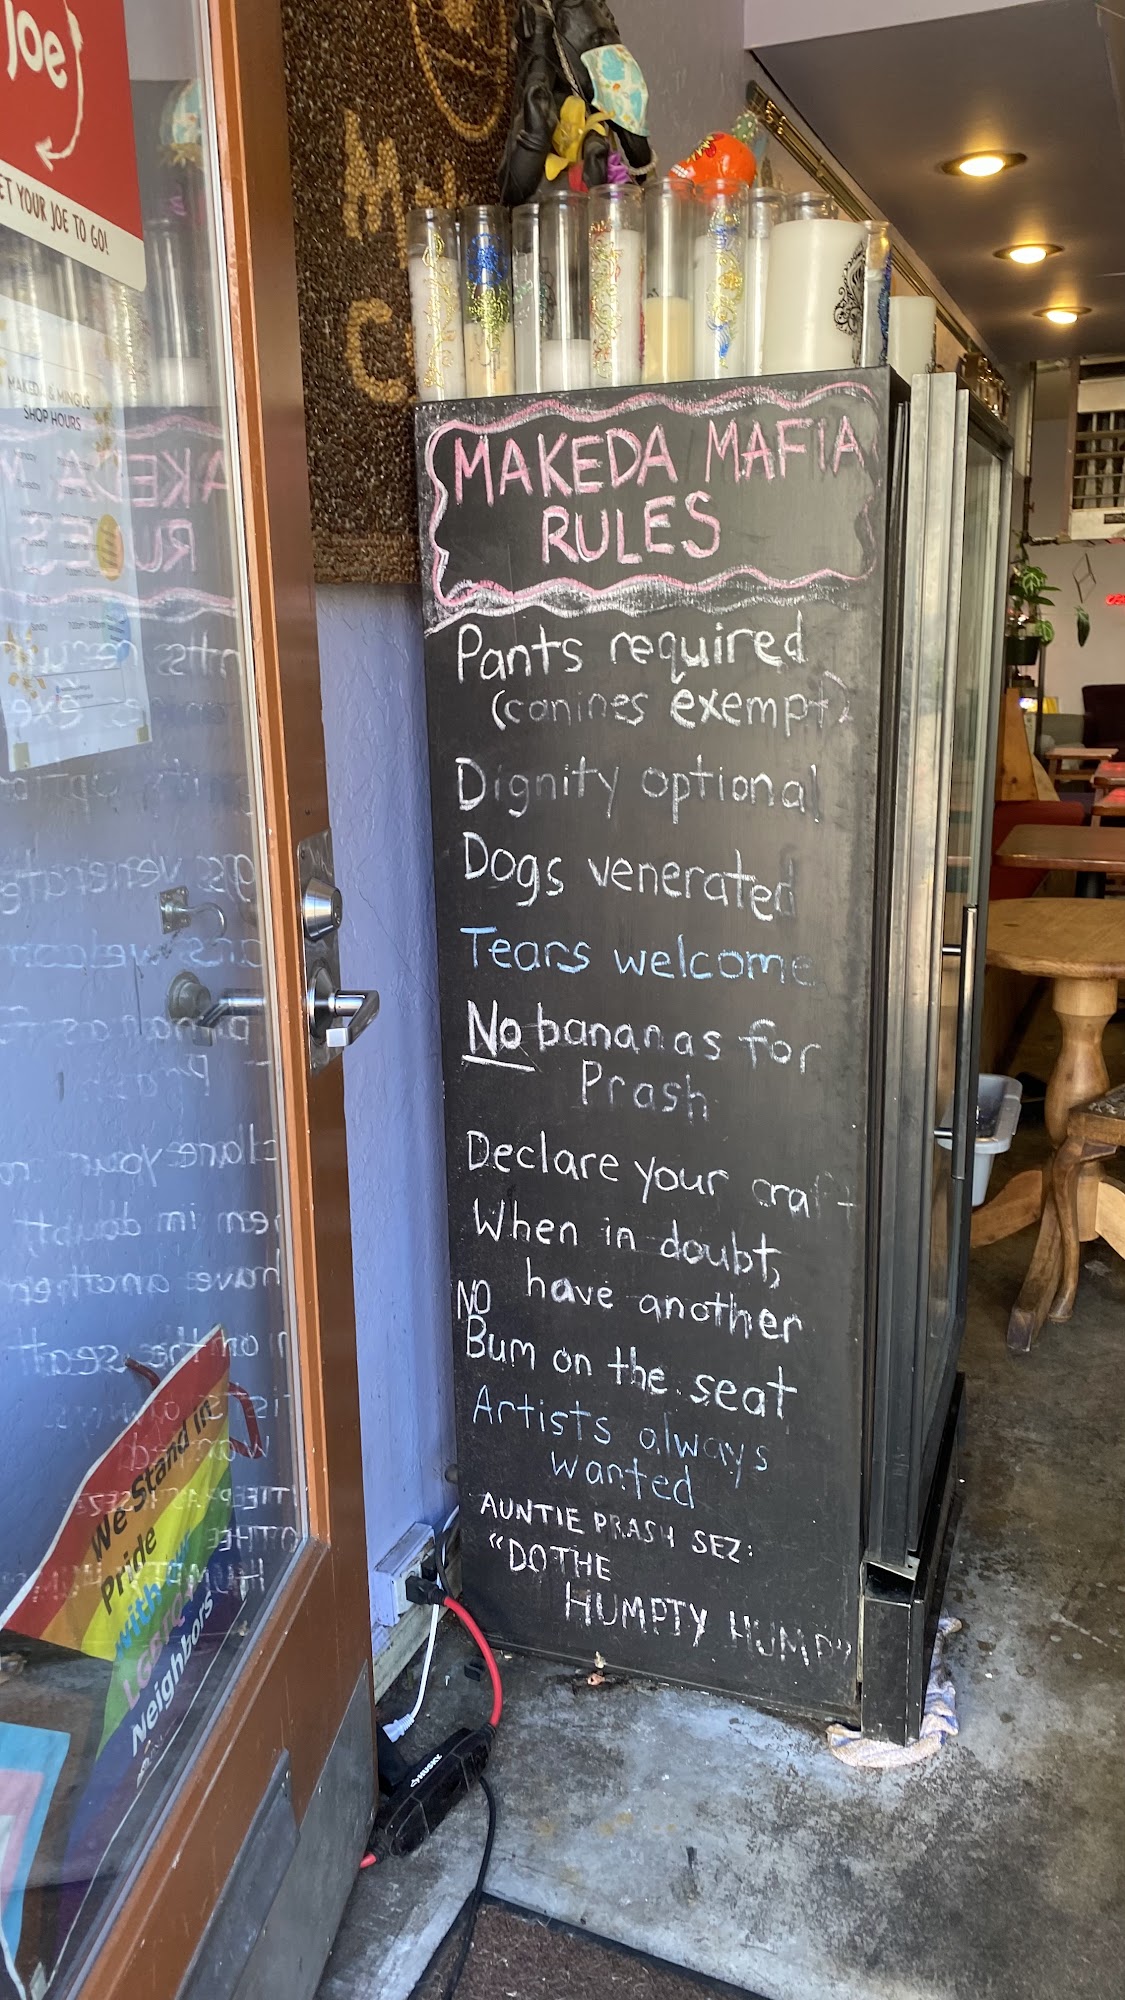 Joe
ET YOUR JOE TO GO!
MAKEDA & MINGUS
SHOP HOURS
M
C
MAKEDA MAFIA
RULES
Pants required
(canines exempt)
Dignity optional
Dogs venerated
Tears welcome
No bananas for
Prash
Declare your craft
When in doubt,
have another
NO
Bum on the seat
Artists always
wanted
AUNTIE PRASH SEZ:
"DO THE
HUMPTY HUMP"
We Stand in
Pride
with our
LGBTQ+
Neighbors
HUSKY